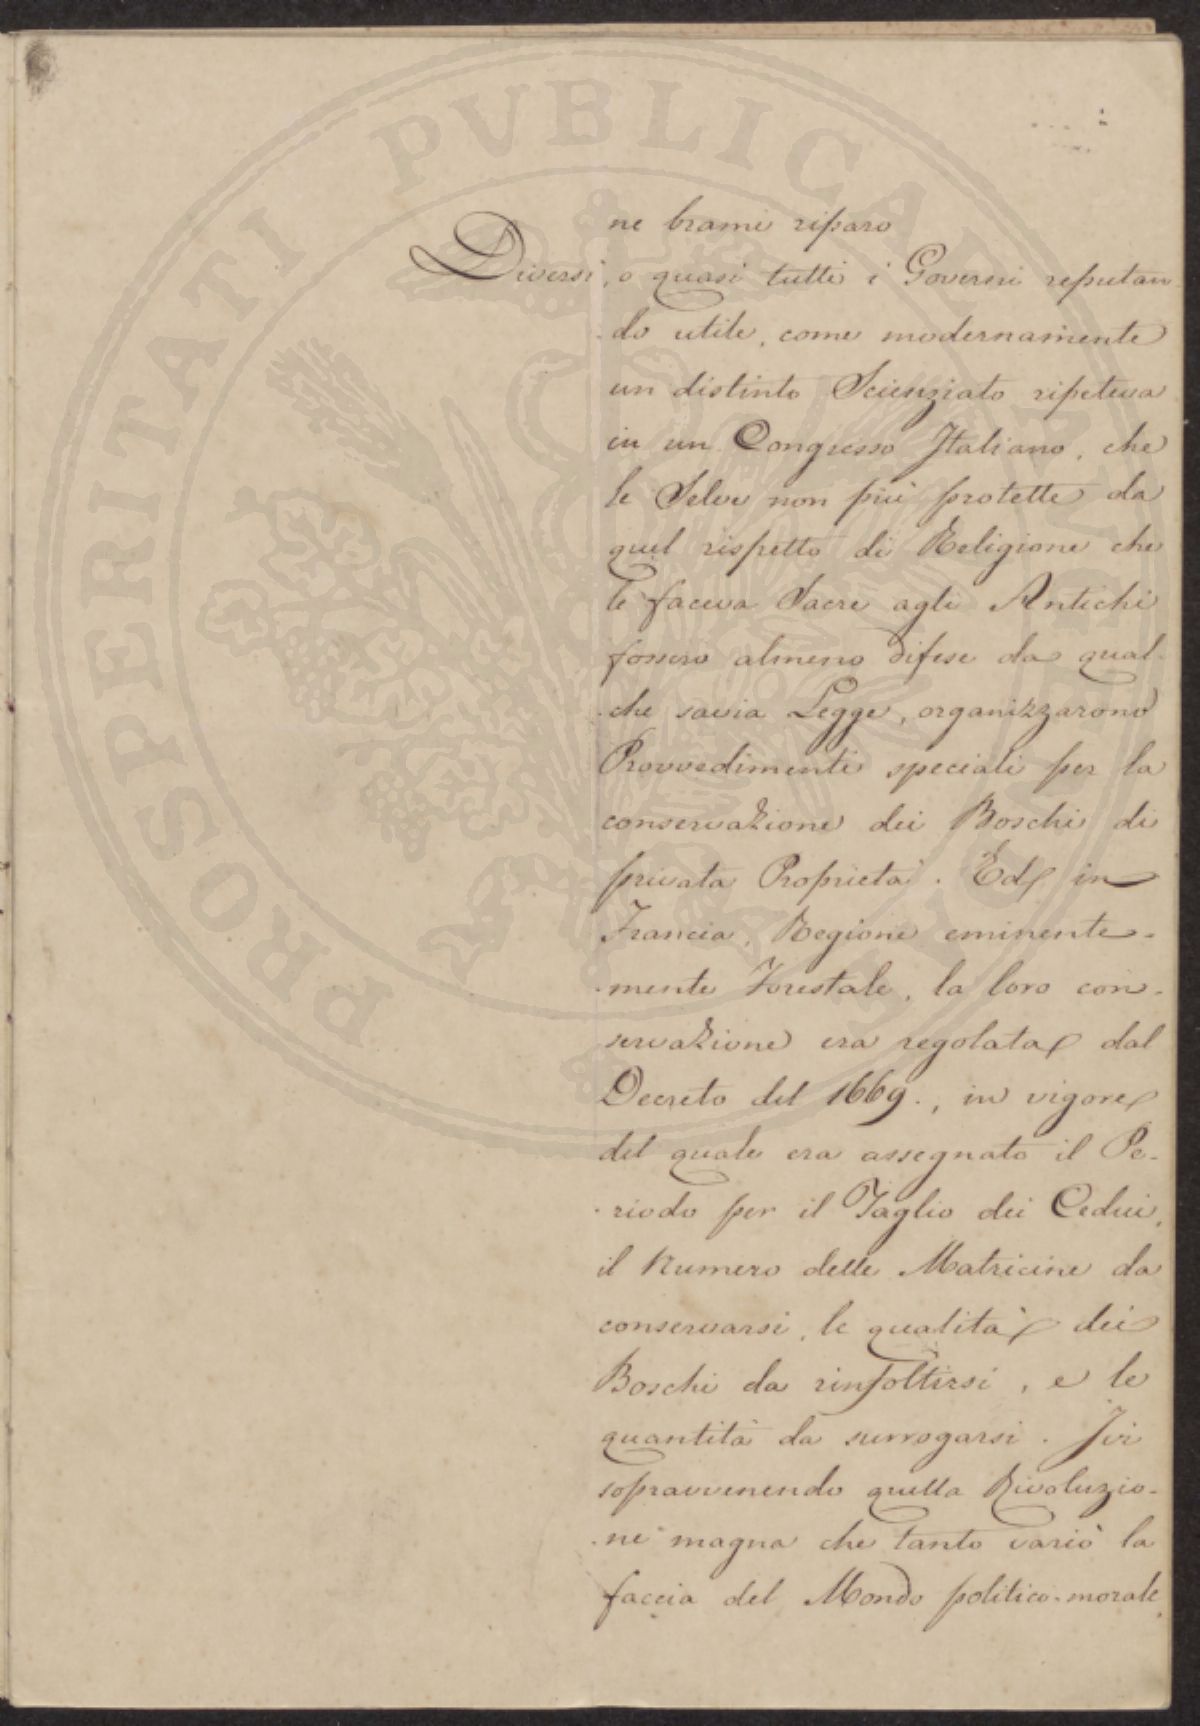 ne brami riparo
Diversi, o quasi tutti i Governi reputan
-do utile, come modernamente
un distinto Scienziato ripeteva
in un Congresso Italiano, che
le Selve non più protette da
quel rispetto di Religione che
le faceva Sacre agli Antichi
fossero almeno difese da qual-
-che savia Legge, organizzarono
Provvedimenti speciali per la
conservazione dei Boschi di
privata Proprietà. Ed in
Francia, Regione eminente-
-mente Forestale, la loro con-
servazione era regolata dal
Decreto del 1669., in vigore
del quale era assegnato il Pe-
-riodo per il Taglio dei Cedui,
il Numero delle Matricine da
conservarsi, le qualità dei
Boschi da rinfoltirsi, e le
quantità da surrogarsi. Ivi
sopravvenendo quella Rivoluzio-
-ne magna che tanto variò la
faccia del Mondo politico-morale,
PROSPERITATI PVBLICAE